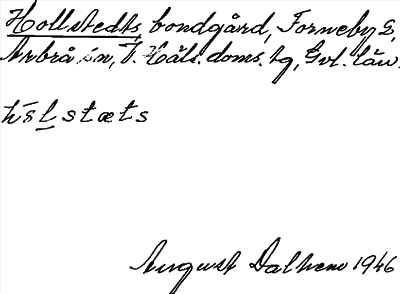 Hollstedts, bondgård, Forneby 2,
Arbrå sn, V. Häls. doms. tg, Gvl. län.
hɔ̄lstæts
August Dalhem 1946